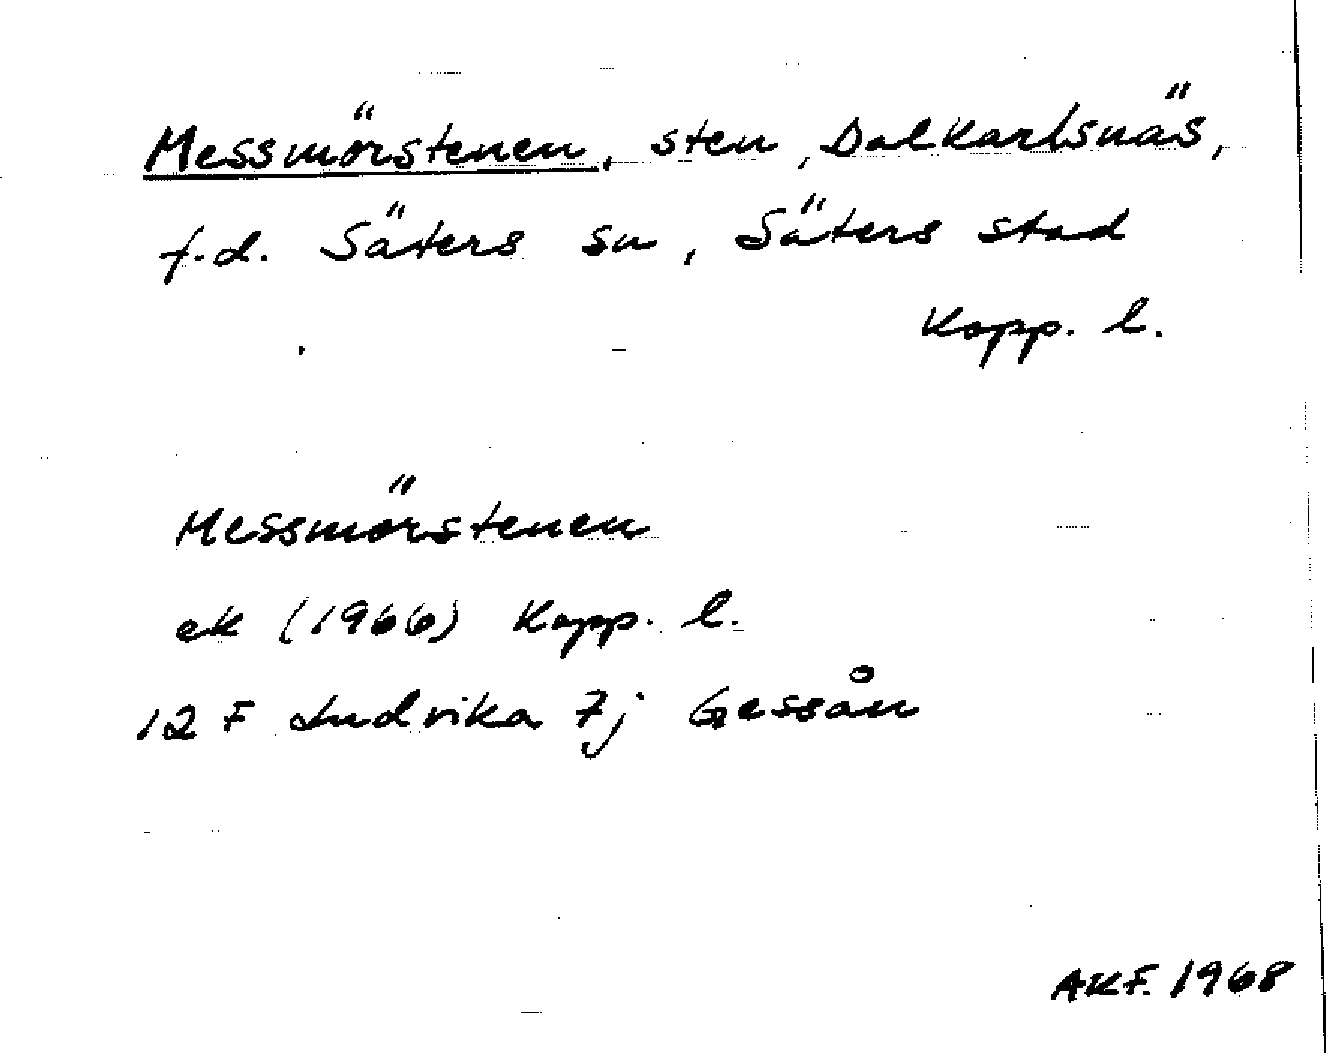 Messmörstenen, sten, Dalkarlsnäs,
f.d. Säters sn, Säters stad
Kopp. l.
Messmörstenen
ek (1966) Kopp. l.
12 F Ludvika 7j Gessån
AKF. 1968